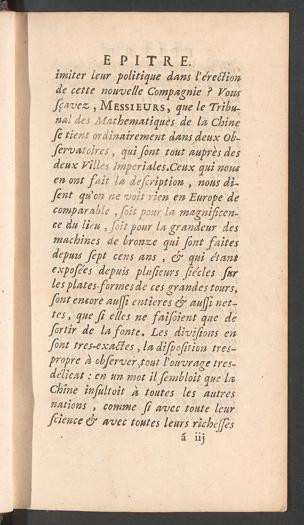 EPITRE.
imiter leur politique dans l'érection
de cette nouvelle Compagnie ? Vous
sçavez, MESSIEURS, que le Tribu-
nal des Mathematiques de la Chine
se tient ordinairement dans deux Ob-
servatoires, qui sont tout auprès des
deux Villes Imperiales. Ceux qui nous
en ont fait la description, nous di-
sent qu'on ne voit rien en Europe de
comparable, soit pour la magnificen-
ce du lieu, soit pour la grandeur des
machines de bronze qui sont faites
depuis sept cens ans, & qui étant
exposées depuis plusieurs siécles sur
les plates-formes de ces grandes tours,
sont encore aussi entieres & aussi net-
tes, que si elles ne faisoient que de
sortir de la fonte. Les divisions en
sont tres-exactes, la disposition tres-
propre à observer, tout l'ouvrage tres-
délicat : en un mot il sembloit que la
Chine insultoit à toutes les autres
nations, comme si avec toute leur
science & avec toutes leurs richesses
á iij